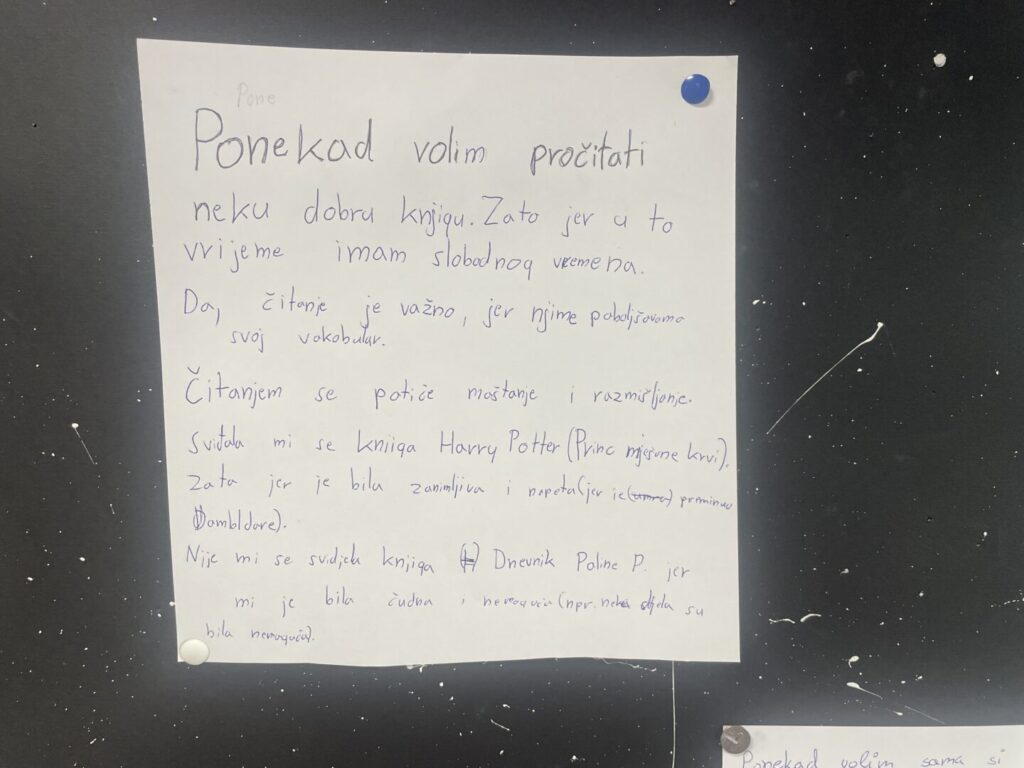 Pone
Ponekad volim pročitati
neku dobru knjigu. Zato jer u to
vrijeme imam slobodnog vremena.
Da, čitanje je važno, jer njime poboljšavamo
svoj vokabular.
Čitanjem se potiče maštanje i razmišljanje.
Sviđala mi se knjiga Harry Potter (Princ mješane krvi).
Zato jer je bila zanimljiva i napeta (jer je (umro) preminuo
Dambldore).
Nije mi se svidjela knjiga Dnevnik Poline P. jer
mi je bila čudna i nemoguća (npr. neka djela su
bila nemoguća).
Ponekad volim sama si